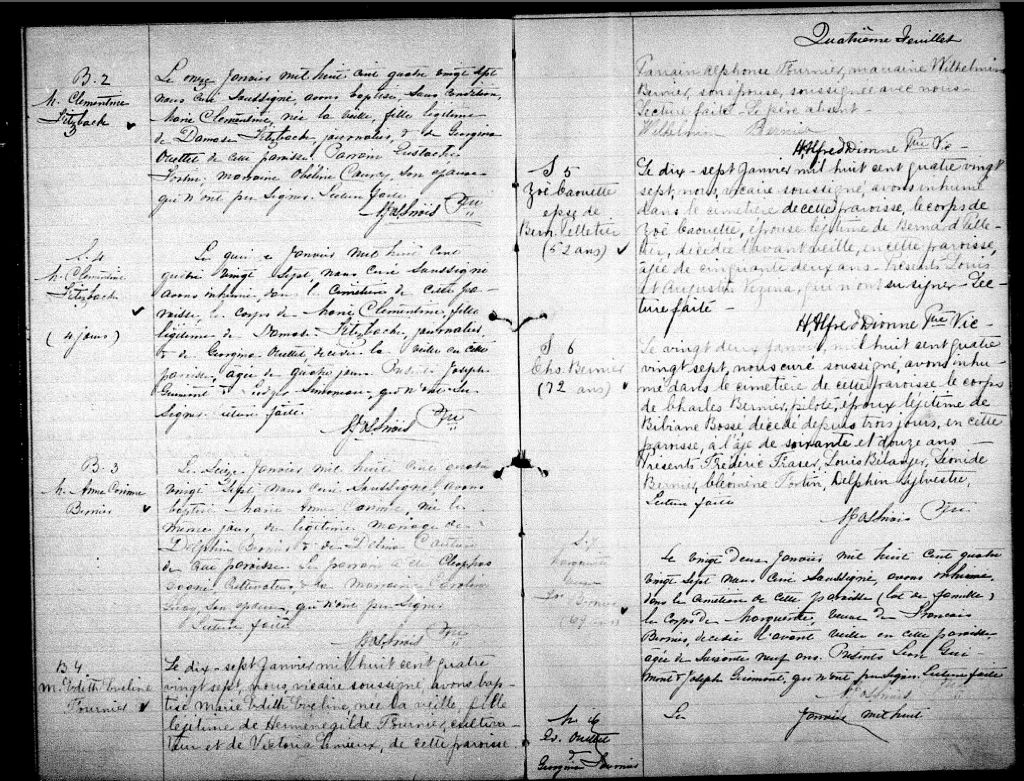 B. 2
M. Clementine
Fitzback
Le onze Janvier mil huit cent quatre vingt sept
nous curé soussigné, avons baptisé, sous condition,
Marie Clementine, née la veille, fille légitime
de Damase Fitzback, journalier, & de Georgina
Ouellet de cette paroisse. Parrain Eustache
Fortin; marraine Obéline Caouet, son épouse
qui n'ont pu signer. Lecture faite
Ptre
S. 4
M. Clementine
Fitzback
(4 jours)
Le quinze Janvier mil huit cent
quatre vingt sept, nous curé soussigné
avons inhumé, dans le cimetière de cette pa-
roisse, le corps de Marie Clementine, fille
légitime de Damase Fitzback, journalier
& de Georgina Ouellet, décédée la veille en cette
paroisse, agée de quatre jours. Présents Joseph
Guimont & Simoneau, qui n'ont su
signer. Lecture faite.
Ptre
B. 3
M. Anne Corinne
Bernier
Le Janvier mil huit cent quatre
vingt sept nous curé soussigné, avons
baptisé Marie Anne Corinne, née le
même jour, du légitime mariage de
Delphin Bernier & de Delina
de cette paroisse. Le parrain a été Cleophas
Gagné, cultivateur, & la marraine Caroline
son épouse, qui n'ont pu signer
Lecture faite
Ptre
B 4
M. Edith Eveline
Fournier
Le dix-sept Janvier mil huit cent quatre
vingt sept, nous, vicaire soussigné, avons bap-
tisé Marie Edith Eveline, née la veille, fille
légitime de Herménégilde Fournier, cultiva-
teur et de Victoria Lemieux, de cette paroisse.
Quatrième Feuillet
Parrain Alphonse Fournier, marraine Wilhelmine
Bernier, son épouse, soussignée avec nous.
Lecture faite. Le père absent.
Wilhelmine Bernier
H. Alfred Dionne Ptre Vic-
S 5
Zoë Caouette
épse de
Bern. Pelletier
(52 ans)
Le dix-sept Janvier mil huit cent quatre vingt
sept, nous, vicaire soussigné, avons inhumé
dans le cimetière de cette paroisse, le corps de
Zoë Caouette, épouse légitime de Bernard Pelle-
tier, décédée l'avant veille, en cette paroisse,
âgée de cinquante deux ans. Présents Louis
et Auguste Vezina, qui n'ont su signer. Lec-
ture faite.
H. Alfred Dionne Ptre Vic-
S 6
Chs. Bernier
(72 ans)
Le vingt deux Janvier, mil huit cent quatre
vingt sept, nous curé soussigné, avons inhu-
mé dans le cimetière de cette paroisse le corps
de Charles Bernier, pilote, époux légitime de
Bibiane Bossé décédé depuis trois jours, en cette
paroisse, à l'âge de soixante et douze ans.
Présents Frédéric Fraser, Louis Bélanger, Léonide
Bernier, Cléomène Fortin, Delphin Sylvestre,
Lecture faite
Ptre
S. 7
Marguerite
veuve
Frs Bernier
(69 ans)
Le vingt deux Janvier mil huit cent quatre
vingt sept nous curé soussigné, avons inhumé,
dans le cimetière de cette paroisse (lot de famille)
le corps de Marguerite, veuve de Francois
Bernier, décédée l'avant veille en cette paroisse
agée de soixante neuf ans. Présents Léon Gui-
mont & Joseph Guimont, qui n'ont pu signer. Lecture faite
Ptre
M
Ouellet
&
Georgina Fournier
Le Janvier mil huit